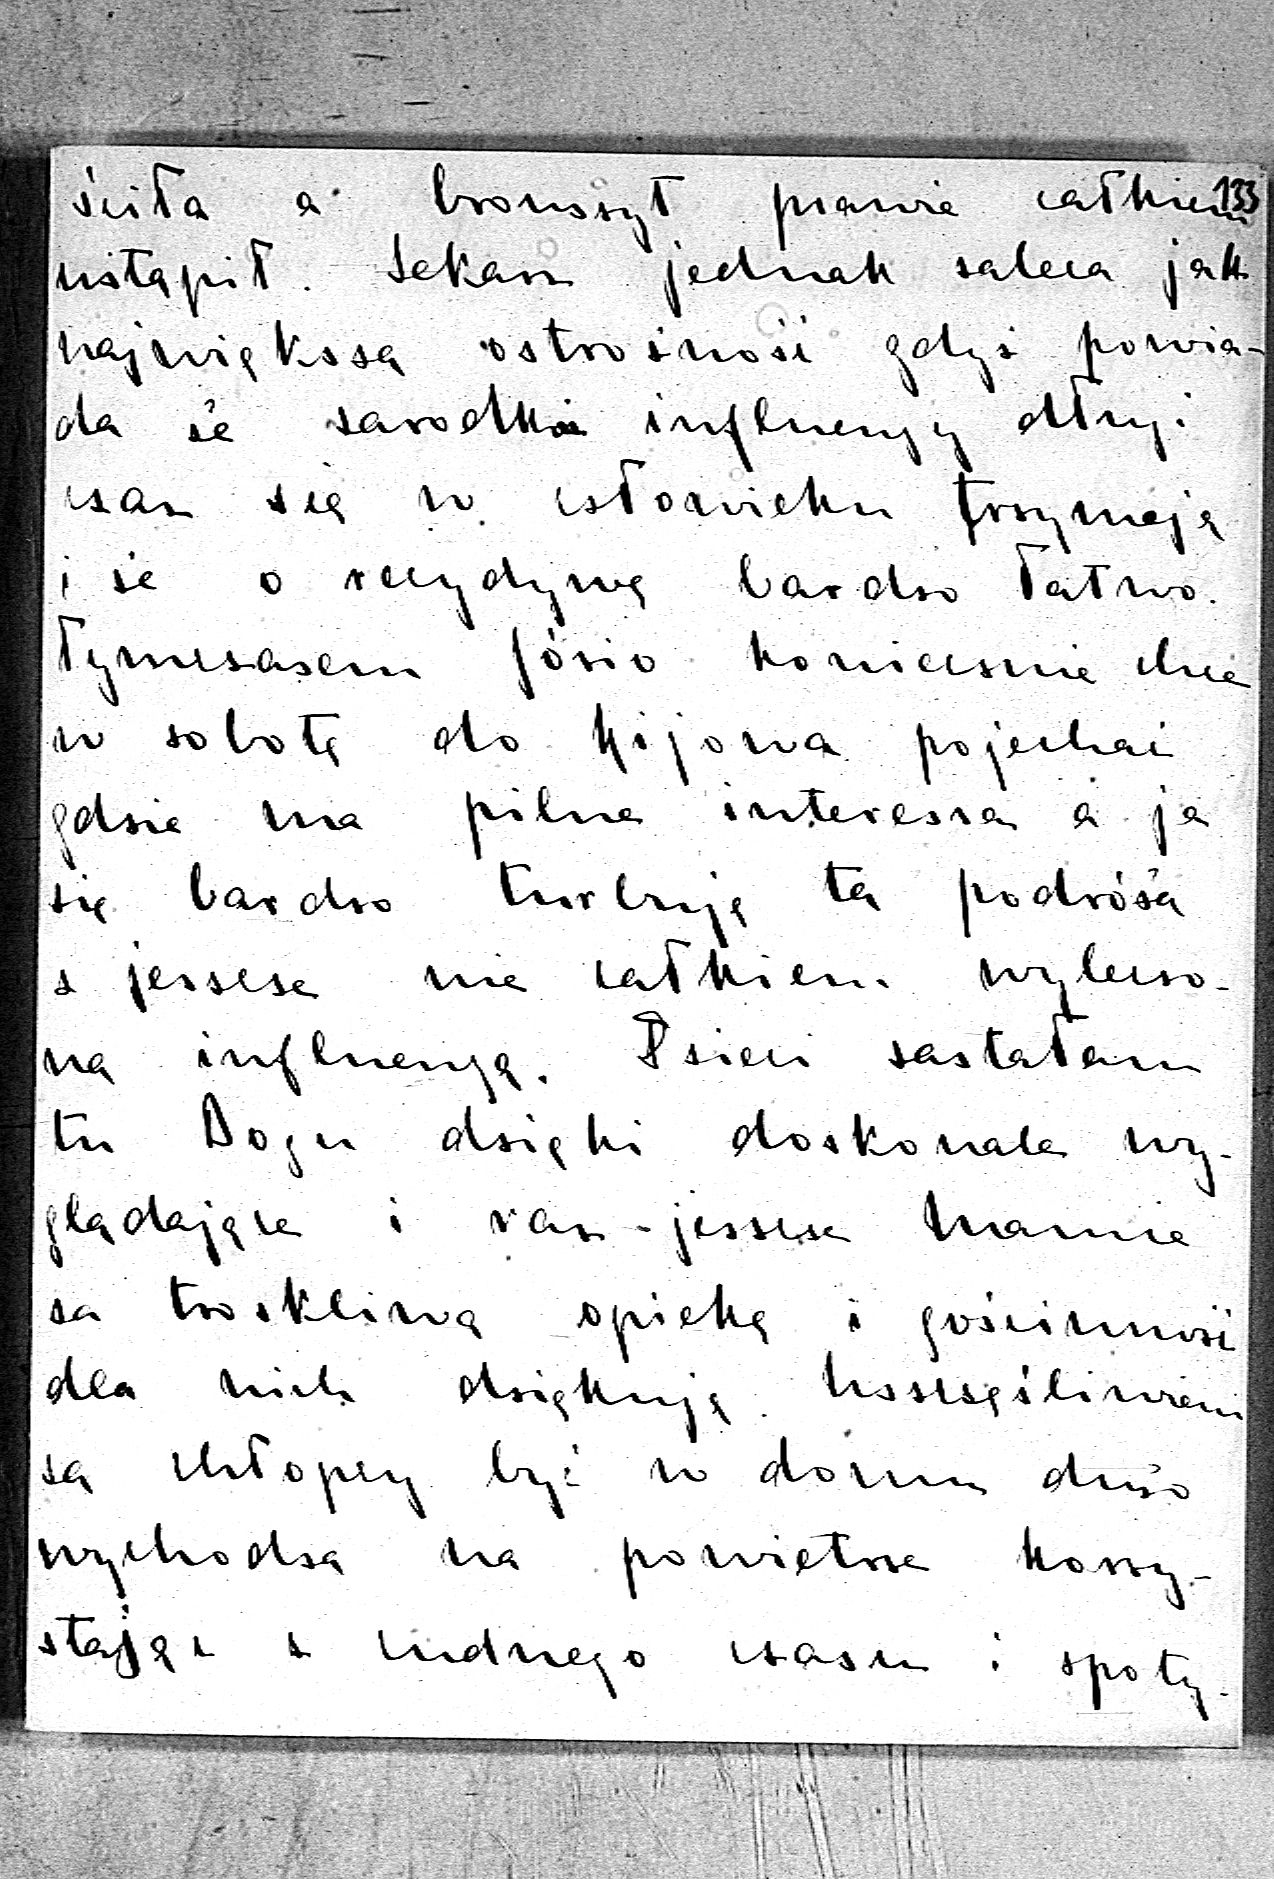 ściła a bronszyt prawie całkiem 133
ustąpił. Lekarz jednak zaleca jak
największą ostrożność gdyż powia-
da że zarodki influenzy dłuż:
czas się w człowieku trzymają
i że o recydywę bardzo łatwo.
Tymczasem Józio koniecznie chce
w sobotę do Kijowa pojechać
gdzie ma pilne interessa a ja
się bardzo turbuję tą podróżą
z jeszcze nie całkiem wyleczo-
ną influenzą. Dzieci zastałam
tu Bogu dzięki doskonale wy-
glądające i raz jeszcze Mamie
za troskliwą opiekę i gościnność
dla nich dziękuję. Uszczęśliwieni
są chłopcy być w domu dużo
wychodzą na powietrze korzy-
stając z cudnego czasu i spoty-